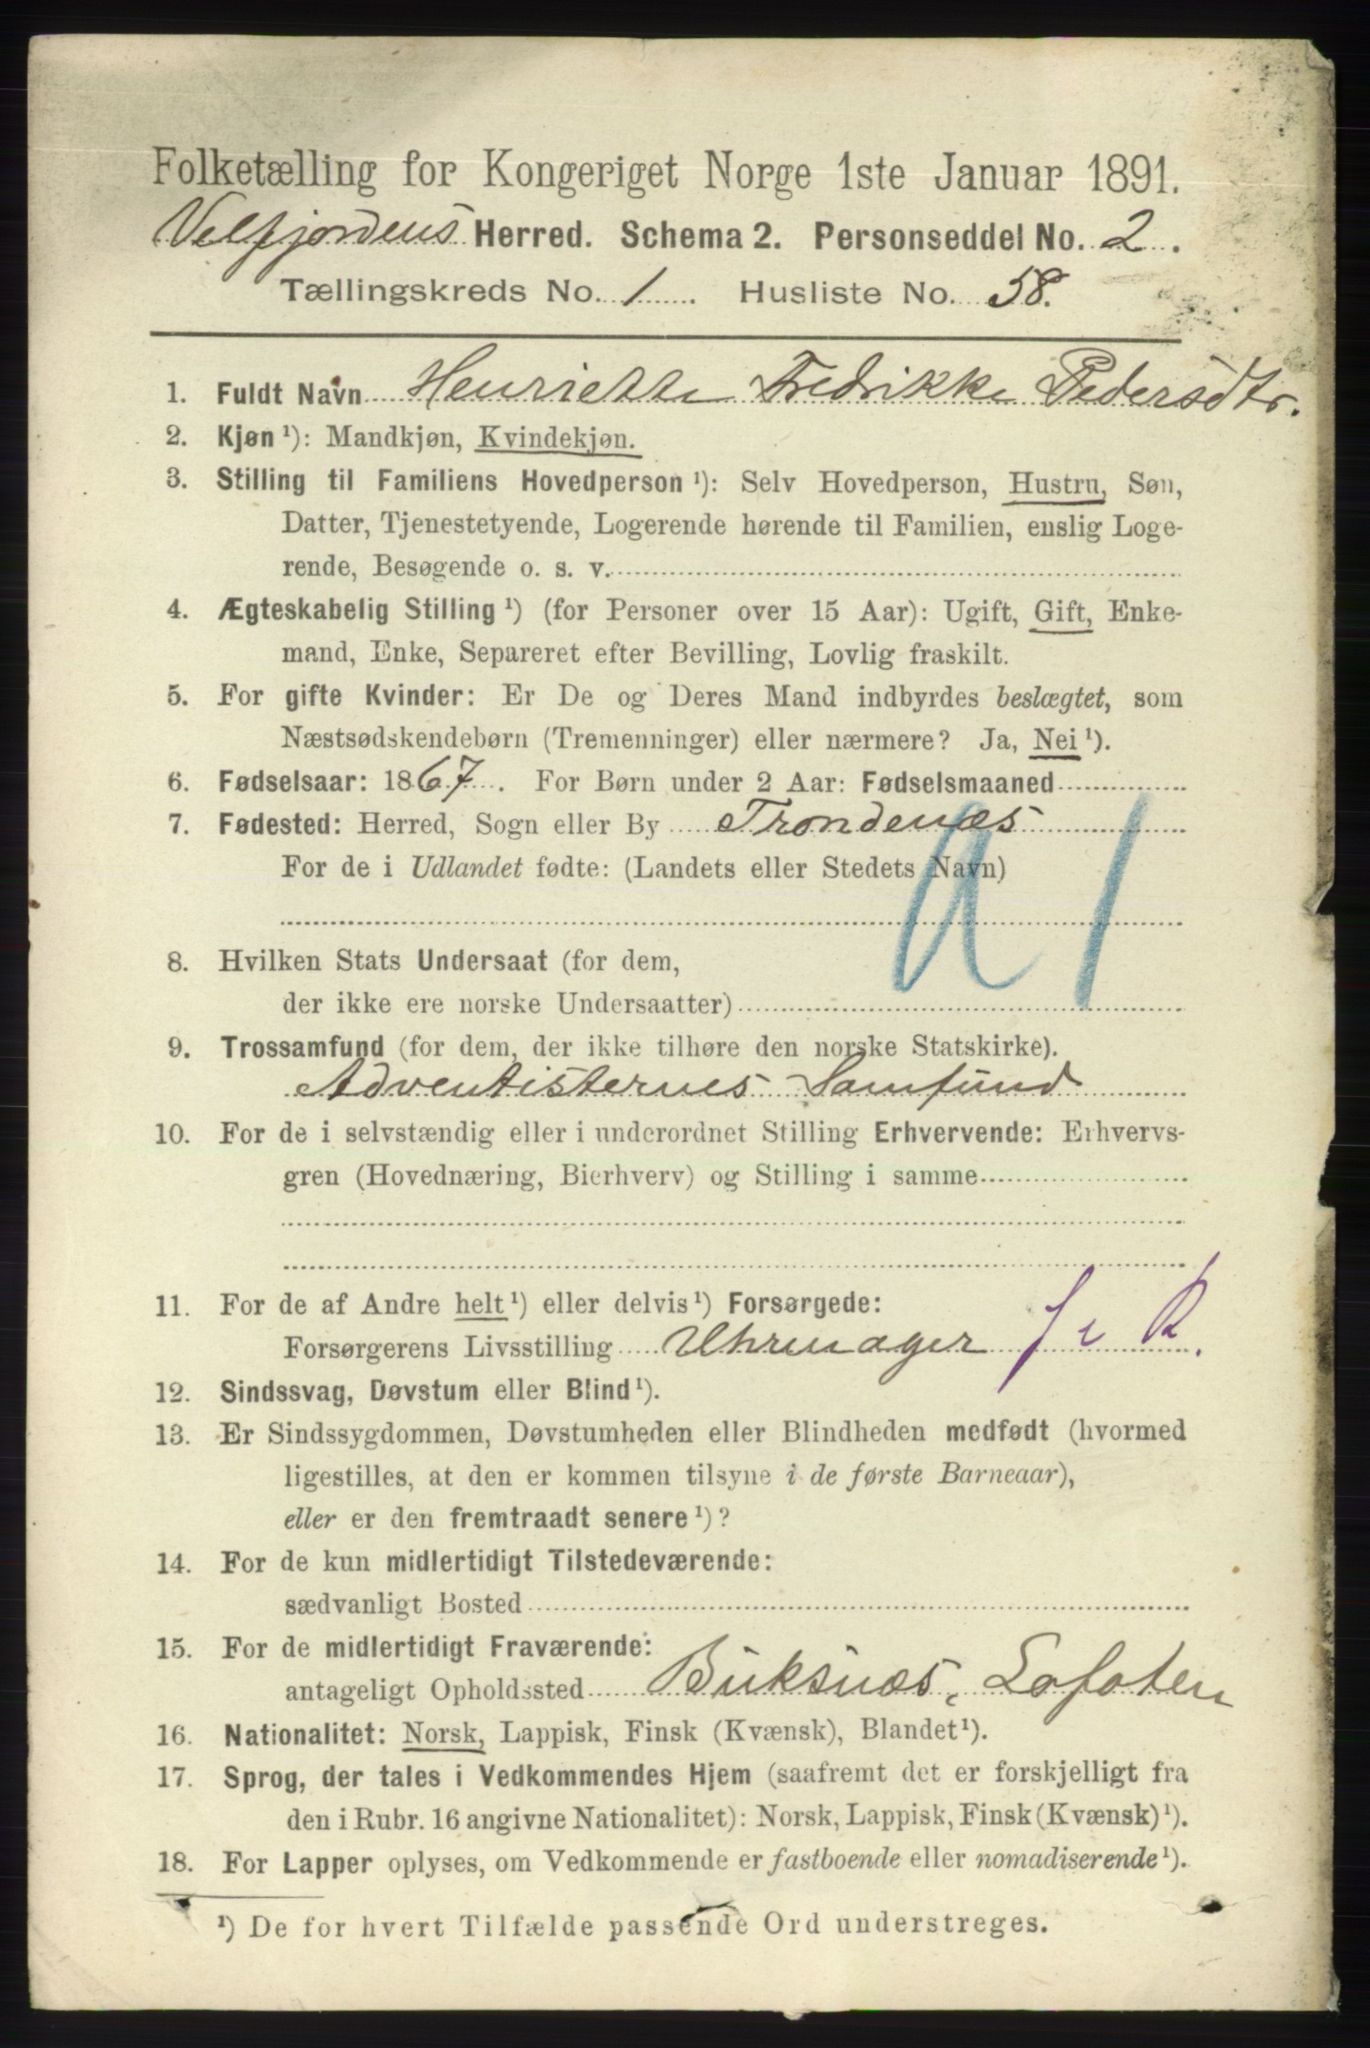 Folketælling for Kongeriget Norge 1ste Januar 1891.
Velfjordens Herred. Schema 2. Personseddel No. 2.
Tællingskreds No. 1. Husliste No. 58.
1. Fuldt Navn Henriette Fredrikke Pedersdtr.
2. Kjøn ¹): Mandkjøn, Kvindekjøn.
3. Stilling til Familiens Hovedperson ¹): Selv Hovedperson, Hustru, Søn,
Datter, Tjenestetyende, Logerende hørende til Familien, enslig Loge-
rende, Besøgende o. s. v.
4. Ægteskabelig Stilling ¹) (for Personer over 15 Aar): Ugift, Gift, Enke-
mand, Enke, Separeret efter Bevilling, Lovlig fraskilt.
5. For gifte Kvinder: Er De og Deres Mand indbyrdes beslægtet, som
Næstsødskendebørn (Tremenninger) eller nærmere? Ja, Nei ¹).
6. Fødselsaar: 1867. For Børn under 2 Aar: Fødselsmaaned
7. Fødested: Herred, Sogn eller By Trondenæs
For de i Udlandet fødte: (Landets eller Stedets Navn)
8. Hvilken Stats Undersaat (for dem,
der ikke ere norske Undersaatter)
9. Trossamfund (for dem, der ikke tilhøre den norske Statskirke).
Adventisternes Samfund
10. For de i selvstændig eller i underordnet Stilling Erhvervende: Erhvervs-
gren (Hovednæring, Bierhverv) og Stilling i samme
11. For de af Andre helt ¹) eller delvis ¹) Forsørgede:
Forsørgerens Livsstilling Uhrmager
12. Sindssvag, Døvstum eller Blind ¹).
13. Er Sindssygdommen, Døvstumheden eller Blindheden medfødt (hvormed
ligestilles, at den er kommen tilsyne i de første Barneaar),
eller er den fremtraadt senere ¹)?
14. For de kun midlertidigt Tilstedeværende:
sædvanligt Bosted
15. For de midlertidigt Fraværende:
antageligt Opholdssted Buksnæs, Lofoten
16. Nationalitet: Norsk, Lappisk, Finsk (Kvænsk), Blandet ¹).
17. Sprog, der tales i Vedkommendes Hjem (saafremt det er forskjelligt fra
den i Rubr. 16 angivne Nationalitet): Norsk, Lappisk, Finsk (Kvænsk) ¹).
18. For Lapper oplyses, om Vedkommende er fastboende eller nomadiserende ¹).
¹) De for hvert Tilfælde passende Ord understreges.